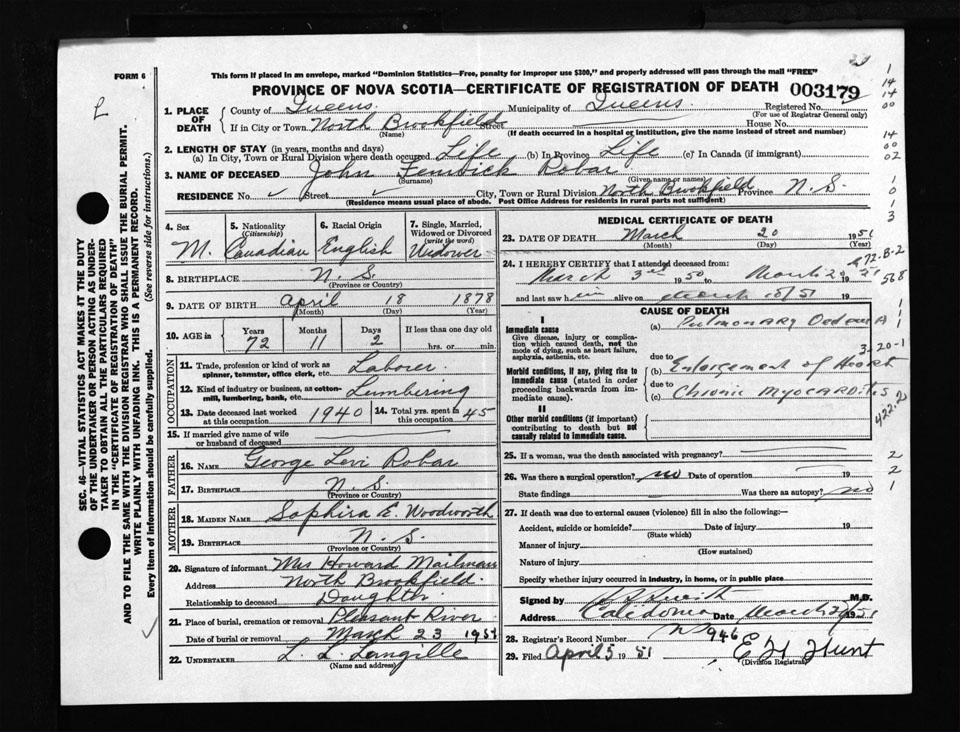 FORM 6
This form if placed in an envelope, marked "Dominion Statistics—Free, penalty for improper use $300," and properly addressed will pass through the mail "FREE"
PROVINCE OF NOVA SCOTIA—CERTIFICATE OF REGISTRATION OF DEATH 003179
1. PLACE OF DEATH
County of Queens Municipality of Queens Registered No.
(For use of Registrar General only)
If in City or Town North Brookfield Street House No.
(Name) (If death occurred in a hospital or institution, give the name instead of street and number)
2. LENGTH OF STAY (in years, months and days)
(a) In City, Town or Rural Division where death occurred Life (b) In Province Life (c) In Canada (if immigrant)
3. NAME OF DECEASED John Fenwick Robar
(Surname) (Given name or names)
RESIDENCE No. ✓ Street ✓ City, Town or Rural Division North Brookfield Province N.S.
(Residence means usual place of abode. Post Office Address for residents in rural parts not sufficient)
4. Sex 5. Nationality (Citizenship) 6. Racial Origin 7. Single, Married, Widowed or Divorced (write the word)
M. Canadian English Widower
8. BIRTHPLACE N.S.
(Province or Country)
9. DATE OF BIRTH April 18 1878
(Month) (Day) (Year)
10. AGE in Years Months Days If less than one day old
72 11 2 hrs. or min.
OCCUPATION
11. Trade, profession or kind of work as spinner, teamster, office clerk, etc. Laborer
12. Kind of industry or business, as cotton-mill, lumbering, bank, etc. Lumbering
13. Date deceased last worked at this occupation 1940 14. Total yrs. spent in this occupation 45
15. If married give name of wife or husband of deceased
FATHER
16. NAME George Levi Robar
17. BIRTHPLACE N.S.
(Province or Country)
MOTHER
18. MAIDEN NAME Sophira E. Woodworth
19. BIRTHPLACE N.S.
(Province or Country)
20. Signature of informant Mrs Howard Mailman
Address North Brookfield.
Relationship to deceased Daughter.
21. Place of burial, cremation or removal Pleasant River
Date of burial or removal March 23 1951
22. UNDERTAKER L. L. Langille
(Name and address)
MEDICAL CERTIFICATE OF DEATH
23. DATE OF DEATH March 20 1951
(Month) (Day) (Year)
24. I HEREBY CERTIFY that I attended deceased from:
March 3rd 1950
and last saw him alive on 19
CAUSE OF DEATH
I
Immediate cause
Give disease, injury or complication which caused death, not the mode of dying, such as heart failure, asphyxia, asthenia, etc.
(a) Pulmonary Oedema
due to
Morbid conditions, if any, giving rise to immediate cause (stated in order proceeding backwards from immediate cause).
(b) Enlorgement of Heart
due to
(c) Chronic Myocarditis
II
Other morbid conditions (if important) contributing to death but not causally related to immediate cause.
25. If a woman, was the death associated with pregnancy?
26. Was there a surgical operation? no Date of operation 19
State findings Was there an autopsy? no
27. If death was due to external causes (violence) fill in also the following:—
Accident, suicide or homicide? Date of injury 19
(State which)
Manner of injury
(How sustained)
Nature of injury
Specify whether injury occurred in industry, in home, or in public place
Signed by M.D.
Address Caledonia Date March 1951
28. Registrar's Record Number 946
29. Filed April 5 1951 E H Hunt
(Division Registrar)
SEC. 46—VITAL STATISTICS ACT MAKES IT THE DUTY
OF THE UNDERTAKER OR PERSON ACTING AS UNDER-
TAKER TO OBTAIN ALL THE PARTICULARS REQUIRED
IN THE "CERTIFICATE OF REGISTRATION OF DEATH"
AND TO FILE THE SAME WITH THE DIVISION REGISTRAR WHO SHALL ISSUE THE BURIAL PERMIT.
WRITE PLAINLY WITH UNFADING INK. THIS IS A PERMANENT RECORD.
Every item of information should be carefully supplied. (See reverse side for instructions.)
L
1
14
14
00
14
00
02
1
0
1
3
472-B-2
568
1
1
1
3-20-1
422-2
2
2
1